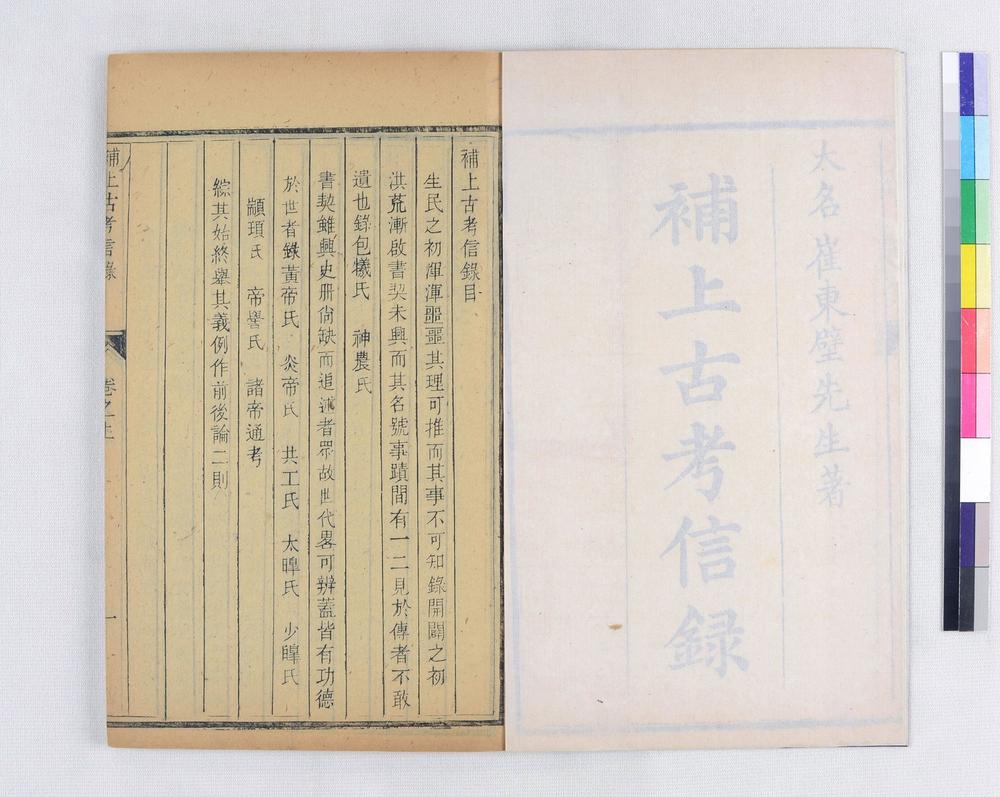 大名崔東壁先生著
補上古考信録
補上古考信錄目
生民之初渾渾噩噩其理可推而其事不可知錄開闢之初
洪荒漸啟書契未興而其名號事蹟間有一二見於傳者不敢
遺也錄包犧氏　神農氏
書契雖興史册尙缺而追述者眾故世代畧可辨蓋皆有功德
於世者錄黃帝氏　炎帝氏　共工氏　太皡氏　少皡氏
顓頊氏　帝嚳氏　諸帝通考
綜其始終舉其義例作前後論二則
補上古考信錄　卷之上　一